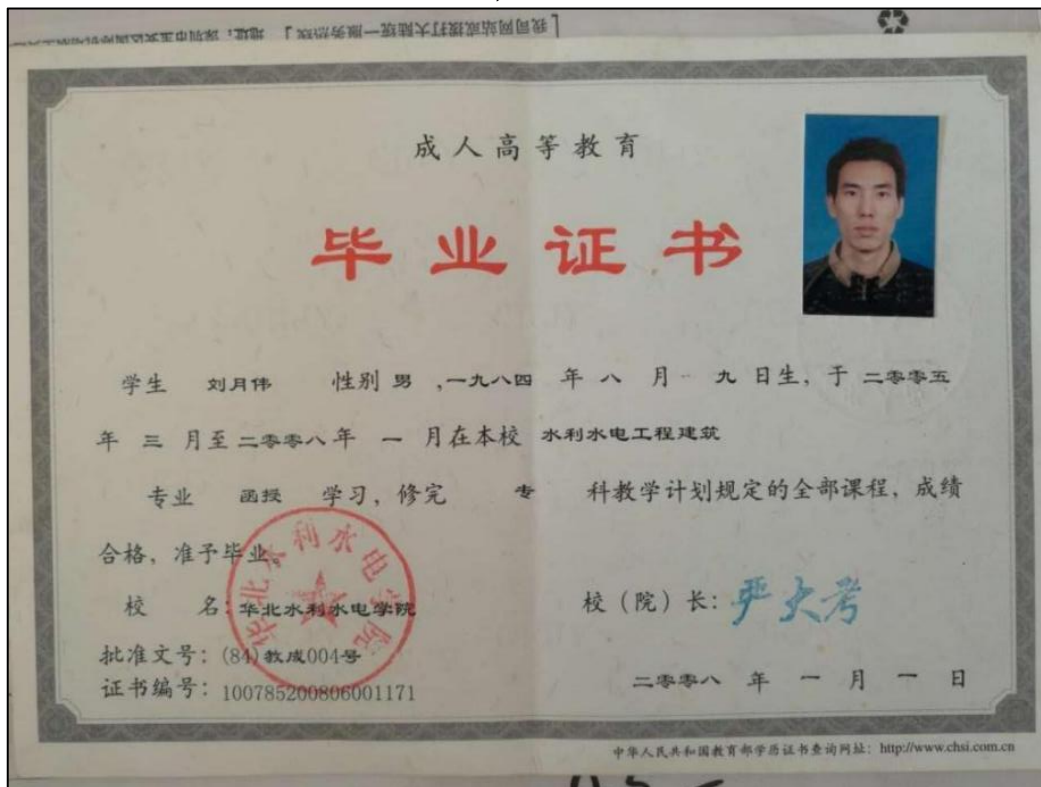 我司网站或拨打大陆统一服务热线】 地址：深圳市宝安区
成人高等教育
毕业证书
学生 刘月伟 性别 男 ,一九八四 年 八 月 九 日生，于 二零零五
年 三 月至 二零零八 年 一 月在本校 水利水电工程建筑
专业 函授 学习，修完 专 科教学计划规定的全部课程，成绩
合格，准予毕业。
华北水利水电学院
校 名：华北水利水电学院
校（院）长：严大考
批准文号：(84)教成004号
证书编号：100785200806001171
二零零八 年 一 月 一 日
中华人民共和国教育部学历证书查询网址：http://www.chsi.com.cn